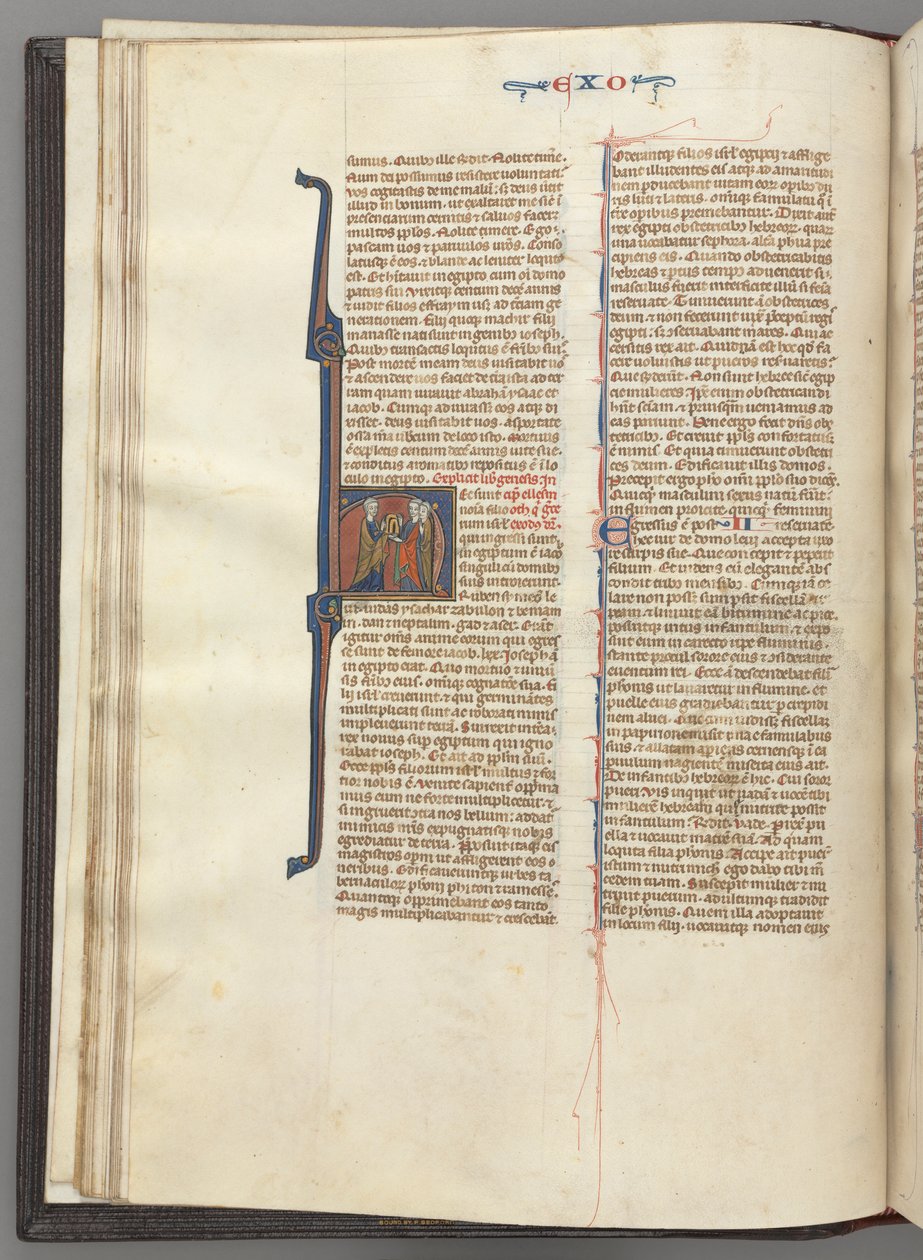 EXO
sumus. Quibꝰ ille rñdit. Nolite time͛.
Num dei possumus resistere voluntati:
vos cogitastis de me malū: sꝫ deus ūtit
illud in bonum. ut exaltaret me sic̄ ī
presenciarum cernitis ⁊ saluos facere
multos ppłos. Nolite timere. Ego
pascam uos ⁊ paruulos uros. Conso
latusqꝫ ē eos. ⁊ blande ac leniter locutꝰ
est. Et hītauit in egipto cum oī domo
patris sui. Vixitqꝫ centum decē annis
⁊ uidit filios effraym usqꝫ ad tciam ge
nerationem. Filii quoqꝫ machir filii
manasse nati sunt in genibꝰ ioseph.
Quibꝰ transactis locutus ē frībꝰ suis
Post mortē meam deus uisitabit uos
⁊ ascendere uos faciet de tra ista ad ter
ram quam iurauit abrahā ysaac et
iacob. Cumqꝫ adiurass͛ eos atqꝫ di
xisset. deus uisitabit uos. asportate
ossa mea uobcum de loco isto. Mortuus
ē expletis centum decē annis uite sue.
⁊ conditus aromatibꝰ repositus ē ī lo
culo in egipto. Explicit lib genesis. In
Ec sunt cip ellesm
noīa filio oth q gce
rum isrł exodꝰ dr̄.
qui ingressi sunt
in egiptum ē iaco
singuli cū domibꝰ
suis introierunt.
Ruben symeō le
ui iudas ysachar zabulon ⁊ beniam
in. dan ⁊ neptalim. gad ⁊ aser. Erāt
igitur oms anime eorum qui egres
se sunt de femore iacob. lxx. Ioseph ā
in egipto erat. Quo mortuo ⁊ uniuer
sis frībꝰ eius. omniqꝫ cognatōe sua. Fi
lii isrł creuerunt. ⁊ quasi germinātes
multiplicati sunt ac roborati nimis
impleuerunt terrā. Surrexit interea
rex nouus sup egiptum qui igno
rabat ioseph. Et ait ad ppłm suū.
Ecce ppłs filiorum isrł multus ⁊ for
tior nobis ē. Venite sapient͛ opprima
mus eum ne forte multiplicetur. ⁊
si ingruerit cōtra nos bellum: addat᷑
inimicis nris expugnatisqꝫ nobis
egrediatur de terra. Pposuit itaqꝫ eis
magistros opum ut affligerent eos o
neribus. Edificaueruntqꝫ urbes ta
bernaculoꝝ pharaoni phiton ⁊ ramesses.
Quantoqꝫ opprimebant eos tanto
magis multiplicabantur ⁊ crescebāt.
Oderantqꝫ filios isrł egiptii ⁊ afflige
bant illudentes eis atqꝫ ad amaritudi
nem pducebant uitam eoꝝ opibꝰ du
ris luti ⁊ lateris. omniqꝫ famulatu q ī
tre opibus premebantur. Dixit aut̄
rex egipti obstetricibꝰ hebreoꝝ. quaꝝ
una uocabatur sephora. altera phua pre
cipiens eis. Quando obstetricabitis
hebreas ⁊ ptus tempꝰ aduenerit si
masculus fuerit interficite illū si feīa
reseruate. Timuerunt ā obstetrices
deum. ⁊ non fecerunt iux pceptū regis
egipti: sꝫ cōseruabant mares. Qui ac
cersitis rex ait. Quidnā est hoc qd fa
cere uoluistis ut pueros reseruaretis:
Que rñdeūt. Non sunt hebree sic̄ egip
cie mulieres. Ipse eium obstetricandi
hn̄t sciam. ⁊ priusqm ueniamus ad
eas pariunt. Bene ergo fecit dn̄s obste
tricibꝰ. Et creuit ppłs confortatusqꝫ
ē nimis. Et quia timuerunt obstetri
ces deum. Edificauit illis domos.
Precepit ergo pho omni ppło suo dicēs.
Quicqd masculini sexus natū fuit:
in flumen proicite. quicqd feminini
Egressus ē post II reseruate
hec uir de domo leui accepta uxo
re stirpis sue. Que concepit ⁊ peperit
filium. Et uidens eū elegantē abs
condit tribꝰ mensibꝰ. Cumqꝫ iā ce
lare non poss͛ sumpsit fiscellā scir
peam ⁊ liniuit eā bitumine ac pice.
posuitqꝫ intus infantulum. ⁊ expo
suit eum in carecto ripe fluminis.
stante procul sorore eius ⁊ cōsiderante
euentum rei. Ecce ā descendebat filia
phonis ut lauaretur in flumine. et
puelle eius gradiebantur p crepidi
nem aluei. Que cum uidiss͛ fiscellam
in papirione misit unā e famulabus
suis. ⁊ allatam apiens cernensqꝫ ī ea
puulum uagientē miserta eius ait.
De infantibꝰ hebreoꝝ ē hic. Cui soror
pueri. Vis inquit ut uadā ⁊ uocē tibi
mulierē hebream que nutrire possit
infantulum: Rñdit. Vade. Prexit pu
ella ⁊ uocauit matrē suā. Ad quam
locuta filia phonis. Accipe ait puerū
istum ⁊ nutri michi. ego dabo tibi m͛
cedem tuam. Suscepit mulier ⁊ nu
triuit puerum. adultumqꝫ tradidit
filie phonis. Quem illa adoptauit
in locum filii. uocauitqꝫ nomen eius
BOUND BY F. BEDFORD